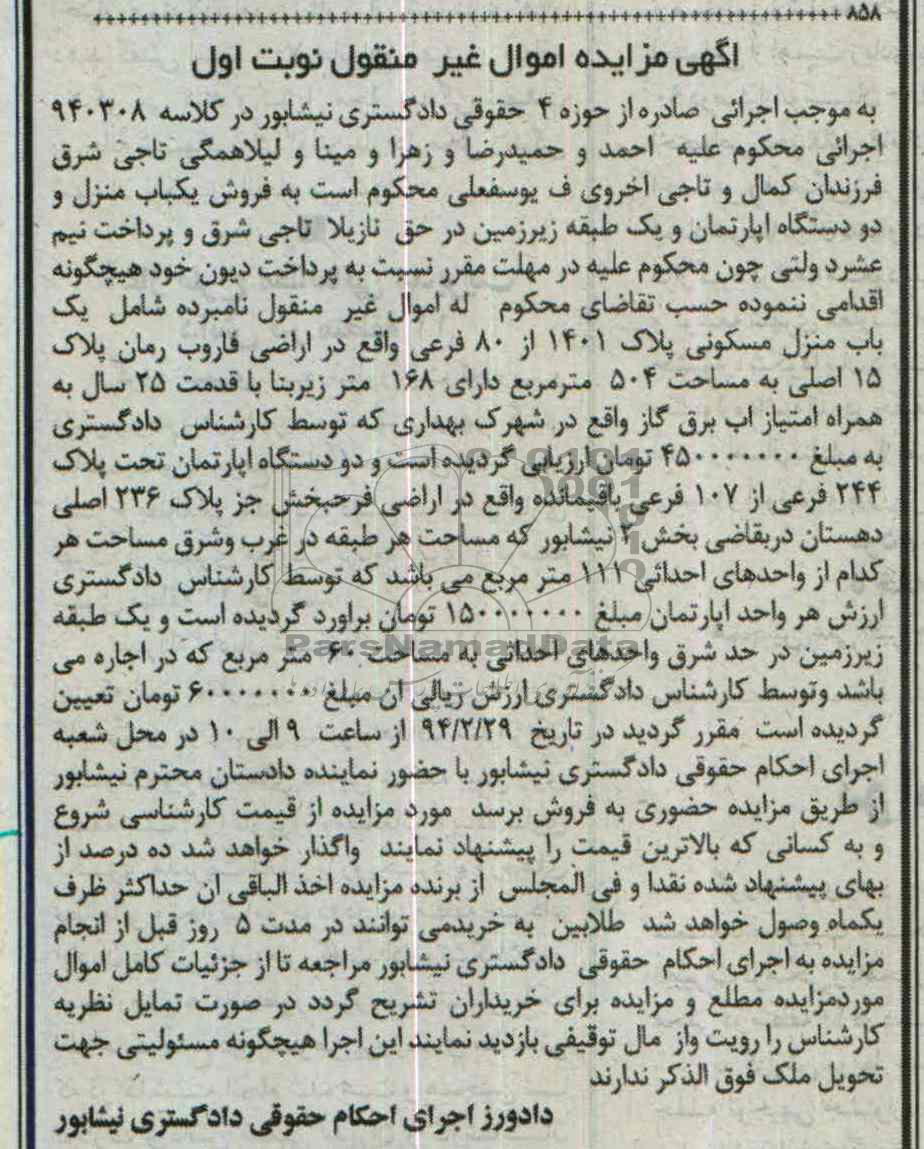 ۸۵۸
آگهی مزایده اموال غیر منقول نوبت اول
به موجب اجرائی صادره از حوزه ۴ حقوقی دادگستری نیشابور در کلاسه ۹۴۰۳۰۸
اجرائی محکوم علیه احمد و حمیدرضا و زهرا و مینا و لیلاهمگی تاجی شرق
فرزندان کمال و تاجی اخروی ف یوسفعلی محکوم است به فروش یکباب منزل و
دو دستگاه اپارتمان و یک طبقه زیرزمین در حق نازیلا تاجی شرق و پرداخت نیم
عشرد ولتی چون محکوم علیه در مهلت مقرر نسبت به پرداخت دیون خود هیچگونه
اقدامی ننموده حسب تقاضای محکوم له اموال غیر منقول نامبرده شامل یک
باب منزل مسکونی پلاک ۱۴۰۱ از ۸۰ فرعی واقع در اراضی فاروب رمان پلاک
۱۵ اصلی به مساحت ۵۰۴ مترمربع دارای ۱۶۸ متر زیربنا با قدمت ۲۵ سال به
همراه امتیاز اب برق گاز واقع در شهرک بهداری که توسط کارشناس دادگستری
به مبلغ ۴۵۰۰۰۰۰۰۰ تومان ارزیابی گردیده است و دو دستگاه اپارتمان تحت پلاک
۲۴۴ فرعی از ۱۰۷ فرعی باقیمانده واقع در اراضی فرحبخش جز پلاک ۲۳۶ اصلی
دهستان دربقاضی بخش ۲ نیشابور که مساحت هر طبقه در غرب وشرق مساحت هر
کدام از واحدهای احداثی ۱۱۱ متر مربع می باشد که توسط کارشناس دادگستری
ارزش هر واحد اپارتمان مبلغ ۱۵۰۰۰۰۰۰۰ تومان براورد گردیده است و یک طبقه
زیرزمین در حد شرق واحدهای احداثی به مساحت ۶۰ متر مربع که در اجاره می
باشد وتوسط کارشناس دادگستری ارزش ریالی ان مبلغ ۶۰۰۰۰۰۰۰ تومان تعیین
گردیده است مقرر گردید در تاریخ ۹۴/۲/۲۹ از ساعت ۹ الی ۱۰ در محل شعبه
اجرای احکام حقوقی دادگستری نیشابور با حضور نماینده دادستان محترم نیشابور
از طریق مزایده حضوری به فروش برسد مورد مزایده از قیمت کارشناسی شروع
و به کسانی که بالاترین قیمت را پیشنهاد نمایند واگذار خواهد شد ده درصد از
بهای پیشنهاد شده نقدا و فی المجلس از برنده مزایده اخذ الباقی ان حداکثر ظرف
یکماه وصول خواهد شد طلابین به خریدمی توانند در مدت ۵ روز قبل از انجام
مزایده به اجرای احکام حقوقی دادگستری نیشابور مراجعه تا از جزئیات کامل اموال
موردمزایده مطلع و مزایده برای خریداران تشریح گردد در صورت تمایل نظریه
کارشناس را رویت واز مال توقیفی بازدید نمایند این اجرا هیچگونه مسئولیتی جهت
تحویل ملک فوق الذکر ندارند
دادورز اجرای احکام حقوقی دادگستری نیشابور
ParsNamadData